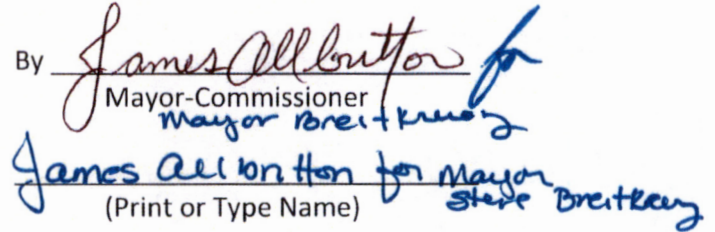 By James Allbritton for
Mayor-Commissioner
Mayor Breitkreuz
James Allbritton for Mayor
Steve Breitkreuz
(Print or Type Name)